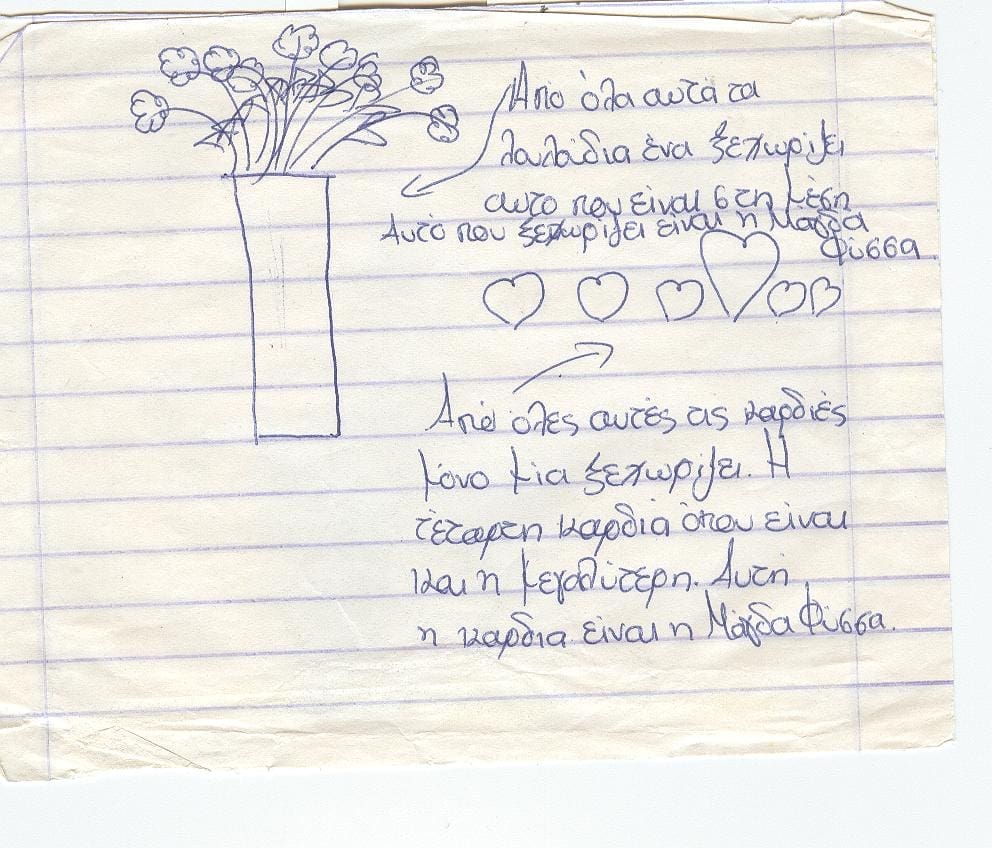 Από όλα αυτά τα
λαλάδια ένα ξεχωρίζει
αυτο που είναι στη μέση
Αυτό που ξεχωρίζει είναι η Μαγδα
Φύσσα.
Από όλες αυτές τις καρδιές
μόνο μία ξεχωρίζει. Η
τέταρτη καρδιά όπου είναι
και η μεγαλύτερη. Αυτη
η καρδια είναι η Μάγδα Φύσσα.